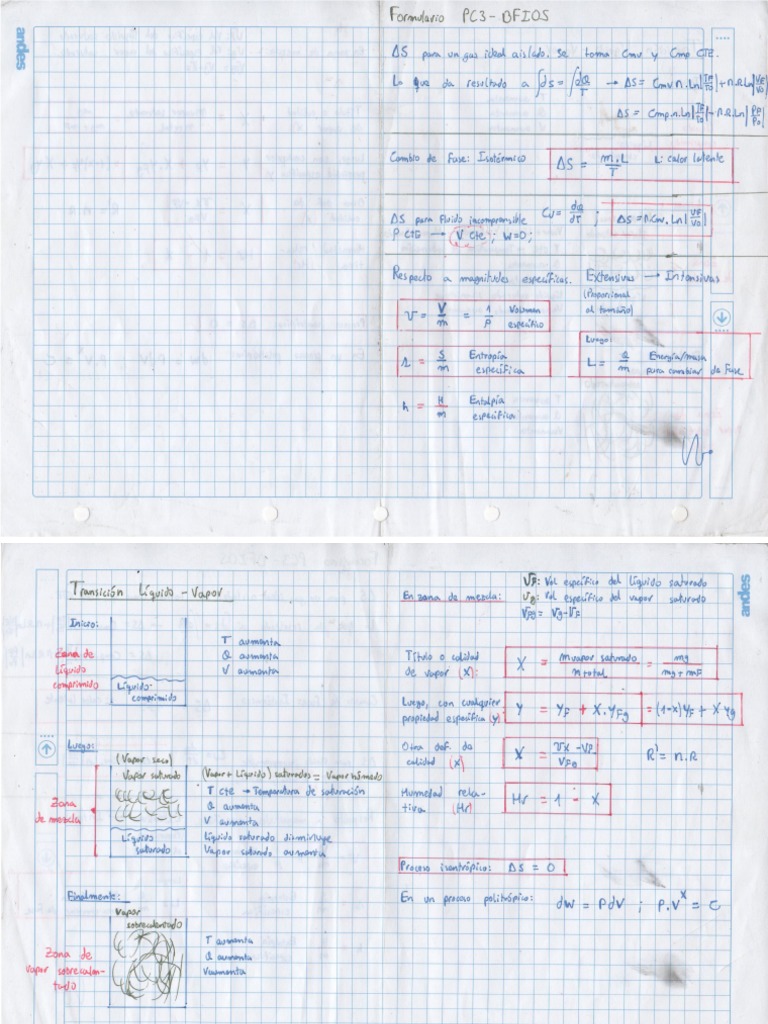 andes
Formulario PC3-BFIOS
ΔS para un gas ideal aislado. Se toma Cmv y Cmp CTE.
Lo que da resultado a ∫dS = ∫dQ/T → ΔS = Cmv n.Ln|TF/T0| + n.R.Ln|VF/V0|
ΔS = Cmp.n.Ln|TF/T0| - n.R.Ln|PF/P0|
Cambio de Fase: Isotérmico ΔS = m.L/T L: calor latente
ΔS para Fluido incompresible Cv = dQ/dT ; ΔS = n.Cmv.Ln|VF/V0|
ρ CTE → V Cte ; W=0;
Respecto a magnitudes específicas. Extensivas → Intensivas
(Proporcional
al tamaño)
v = V/m = 1/ρ Volumen
específico
Luego:
L = Q/m Energía/masa
para cambiar de Fase
s = S/m Entropía
específica
h = H/m Entalpía
específica
andes
Transición Líquido - Vapor
Inicio:
Zona de
líquido
comprimido
Líquido
comprimido
T aumenta
Q aumenta
V aumenta
Luego:
(Vapor seco)
Vapor saturado
Zona
de mezcla
Líquido
saturado
(Vapor + Líquido) saturados = Vapor húmedo
T cte → Temperatura de saturación
Q aumenta
V aumenta
Líquido saturado disminuye
Vapor saturado aumenta
Finalmente:
Vapor
sobrecalentado
Zona de
vapor sobrecalen-
tado
T aumenta
Q aumenta
V aumenta
En zona de mezcla:
VF: Vol específico del líquido saturado
Vg: Vol específico del vapor saturado
VFg = Vg-VF
Título o calidad
de vapor (X):
X = m vapor saturado / m total = mg / mg + mF
Luego, con cualquier
propiedad específica (y):
y = yF + X.yFg = (1-X)yF + X yg
Otra def. de
calidad (X)
X = VX - VF / VFg
R' = n.R
Humedad rela-
tiva (Hr)
Hr = 1 - X
Proceso isentrópico: ΔS = 0
En un proceso politrópico: dW = PdV ; P.V^X = C